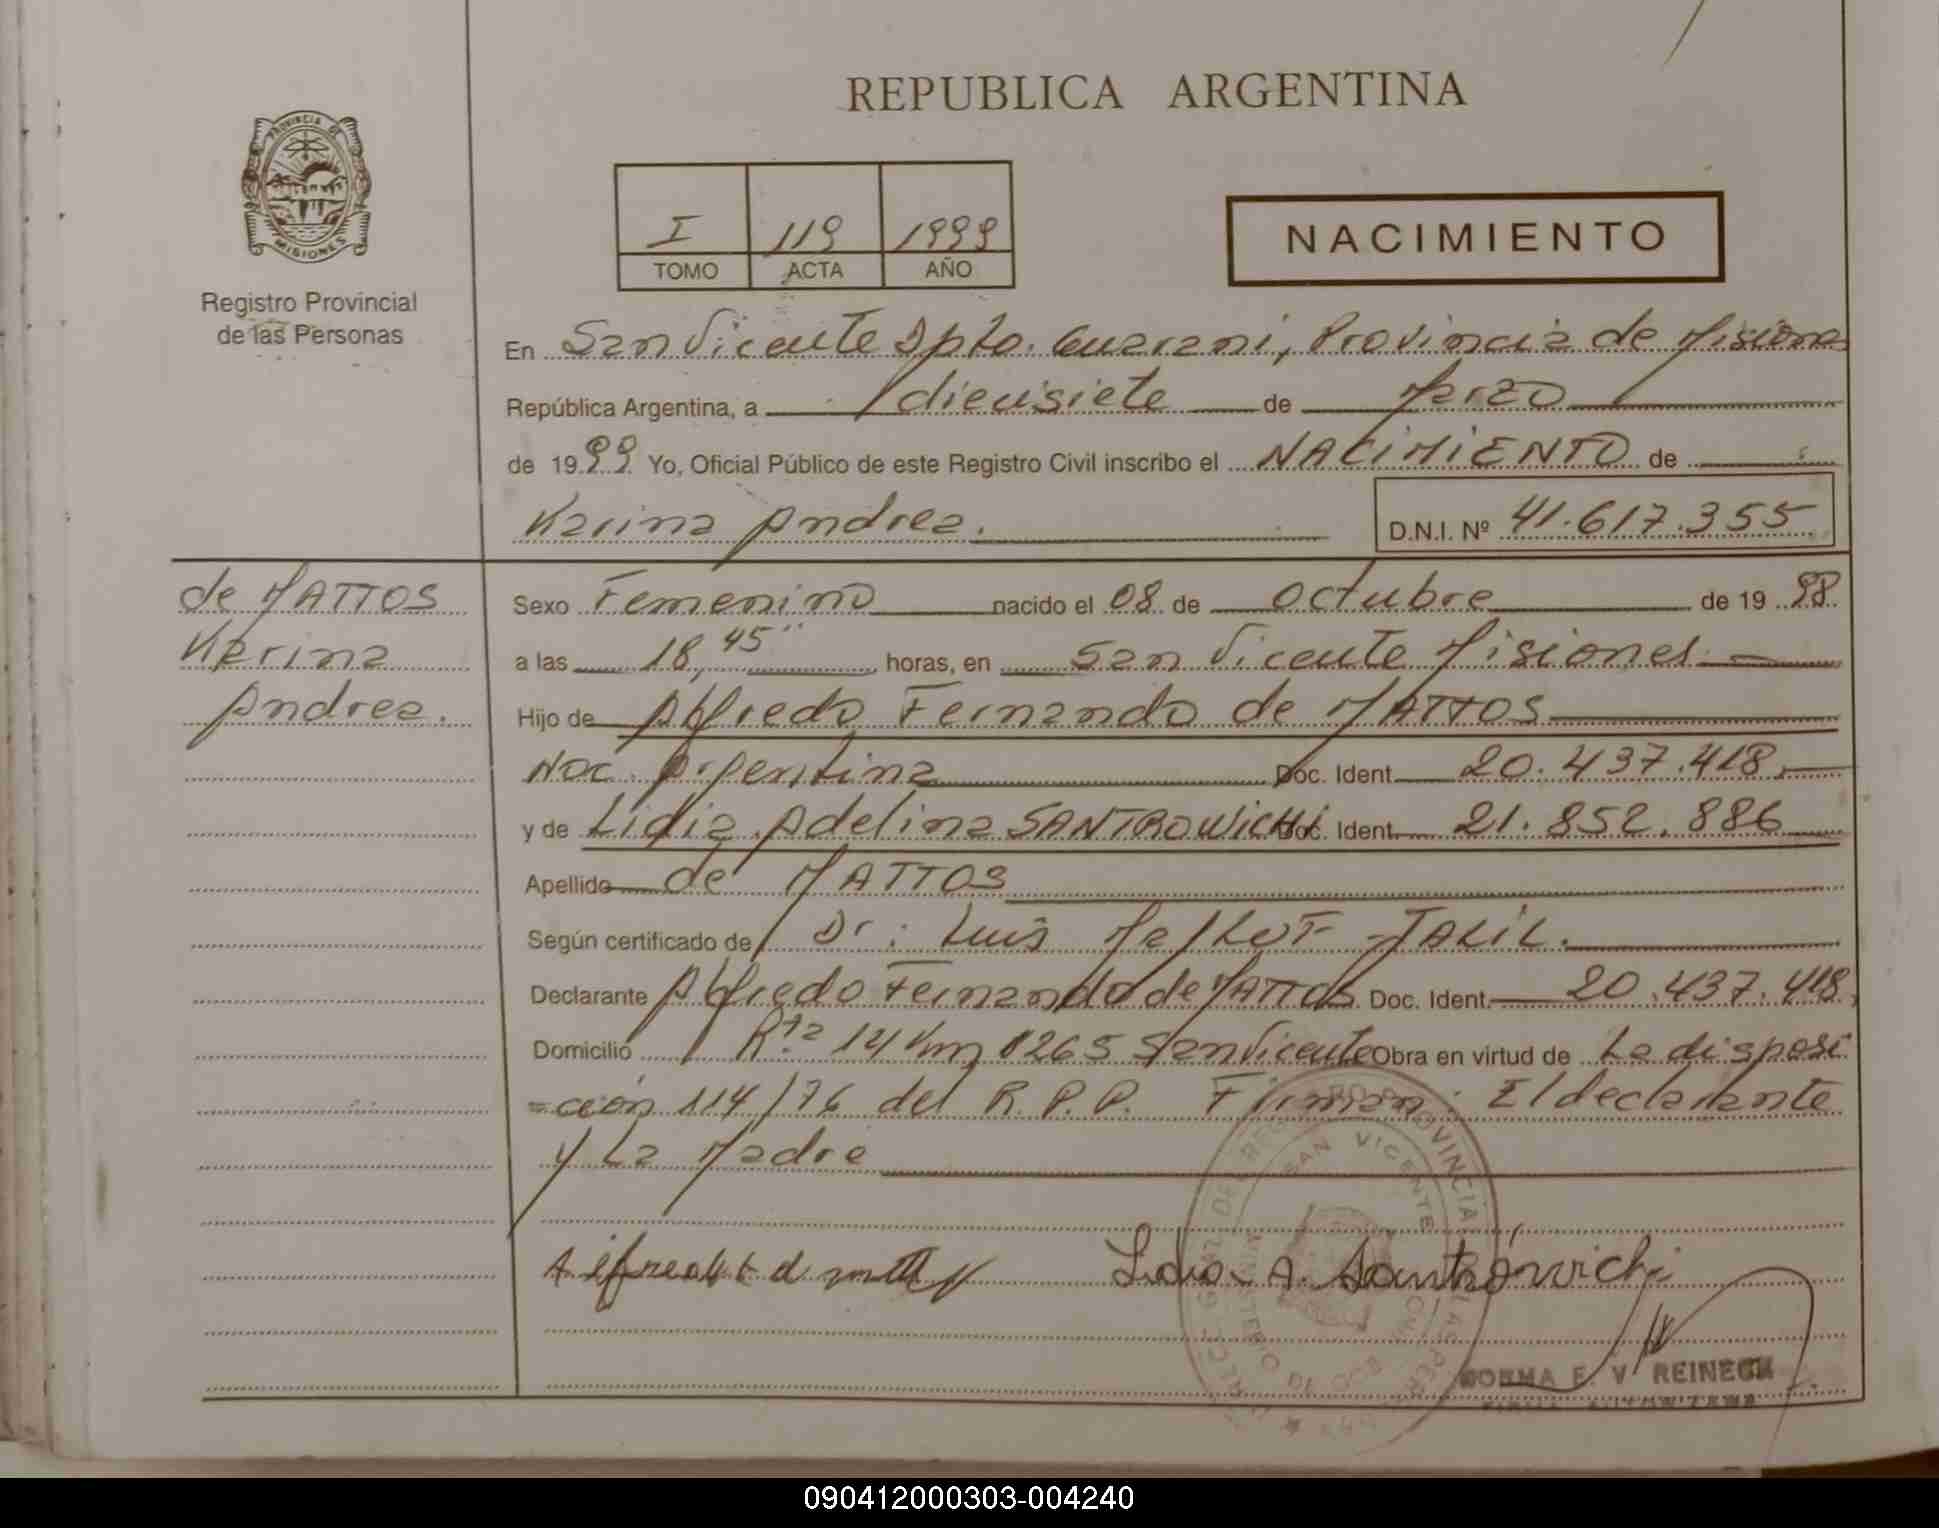 REPUBLICA ARGENTINA
PROVINCIA DE
MISIONES
Registro Provincial
de las Personas
I 119 1999
TOMO ACTA AÑO
NACIMIENTO
En San Vicente Dpto. Guarani, Provincia de Misiones
República Argentina, a diecisiete de Marzo
de 1999 Yo, Oficial Público de este Registro Civil inscribo el NACIMIENTO de
Karina Andrea. D.N.I. Nº 41.617.355
de MATTOS
Karina
Andrea.
Sexo Femenino nacido el 08 de octubre de 1998
a las 18,45 horas, en San Vicente Misiones
Hijo de Alfredo Fernando de MATTOS
Nac. Argentina Doc. Ident. 20.437.418
y de Lidia Adelina SANTROWICHI Doc. Ident. 21.852.886
Apellido de MATTOS
Según certificado de Dr: Luis JALIL.
Declarante Alfredo Fernando de MATTOS Doc. Ident. 20.437.418,
Domicilio Rta 14 Km 1265 San Vicente Obra en virtud de La disposi
=cion 114/76 del R.P.P. Firman: El declarante
y La Madre
Lidia A. Santrovichi
SAN VICENTE
NORMA E. V. REINECK
090412000303-004240